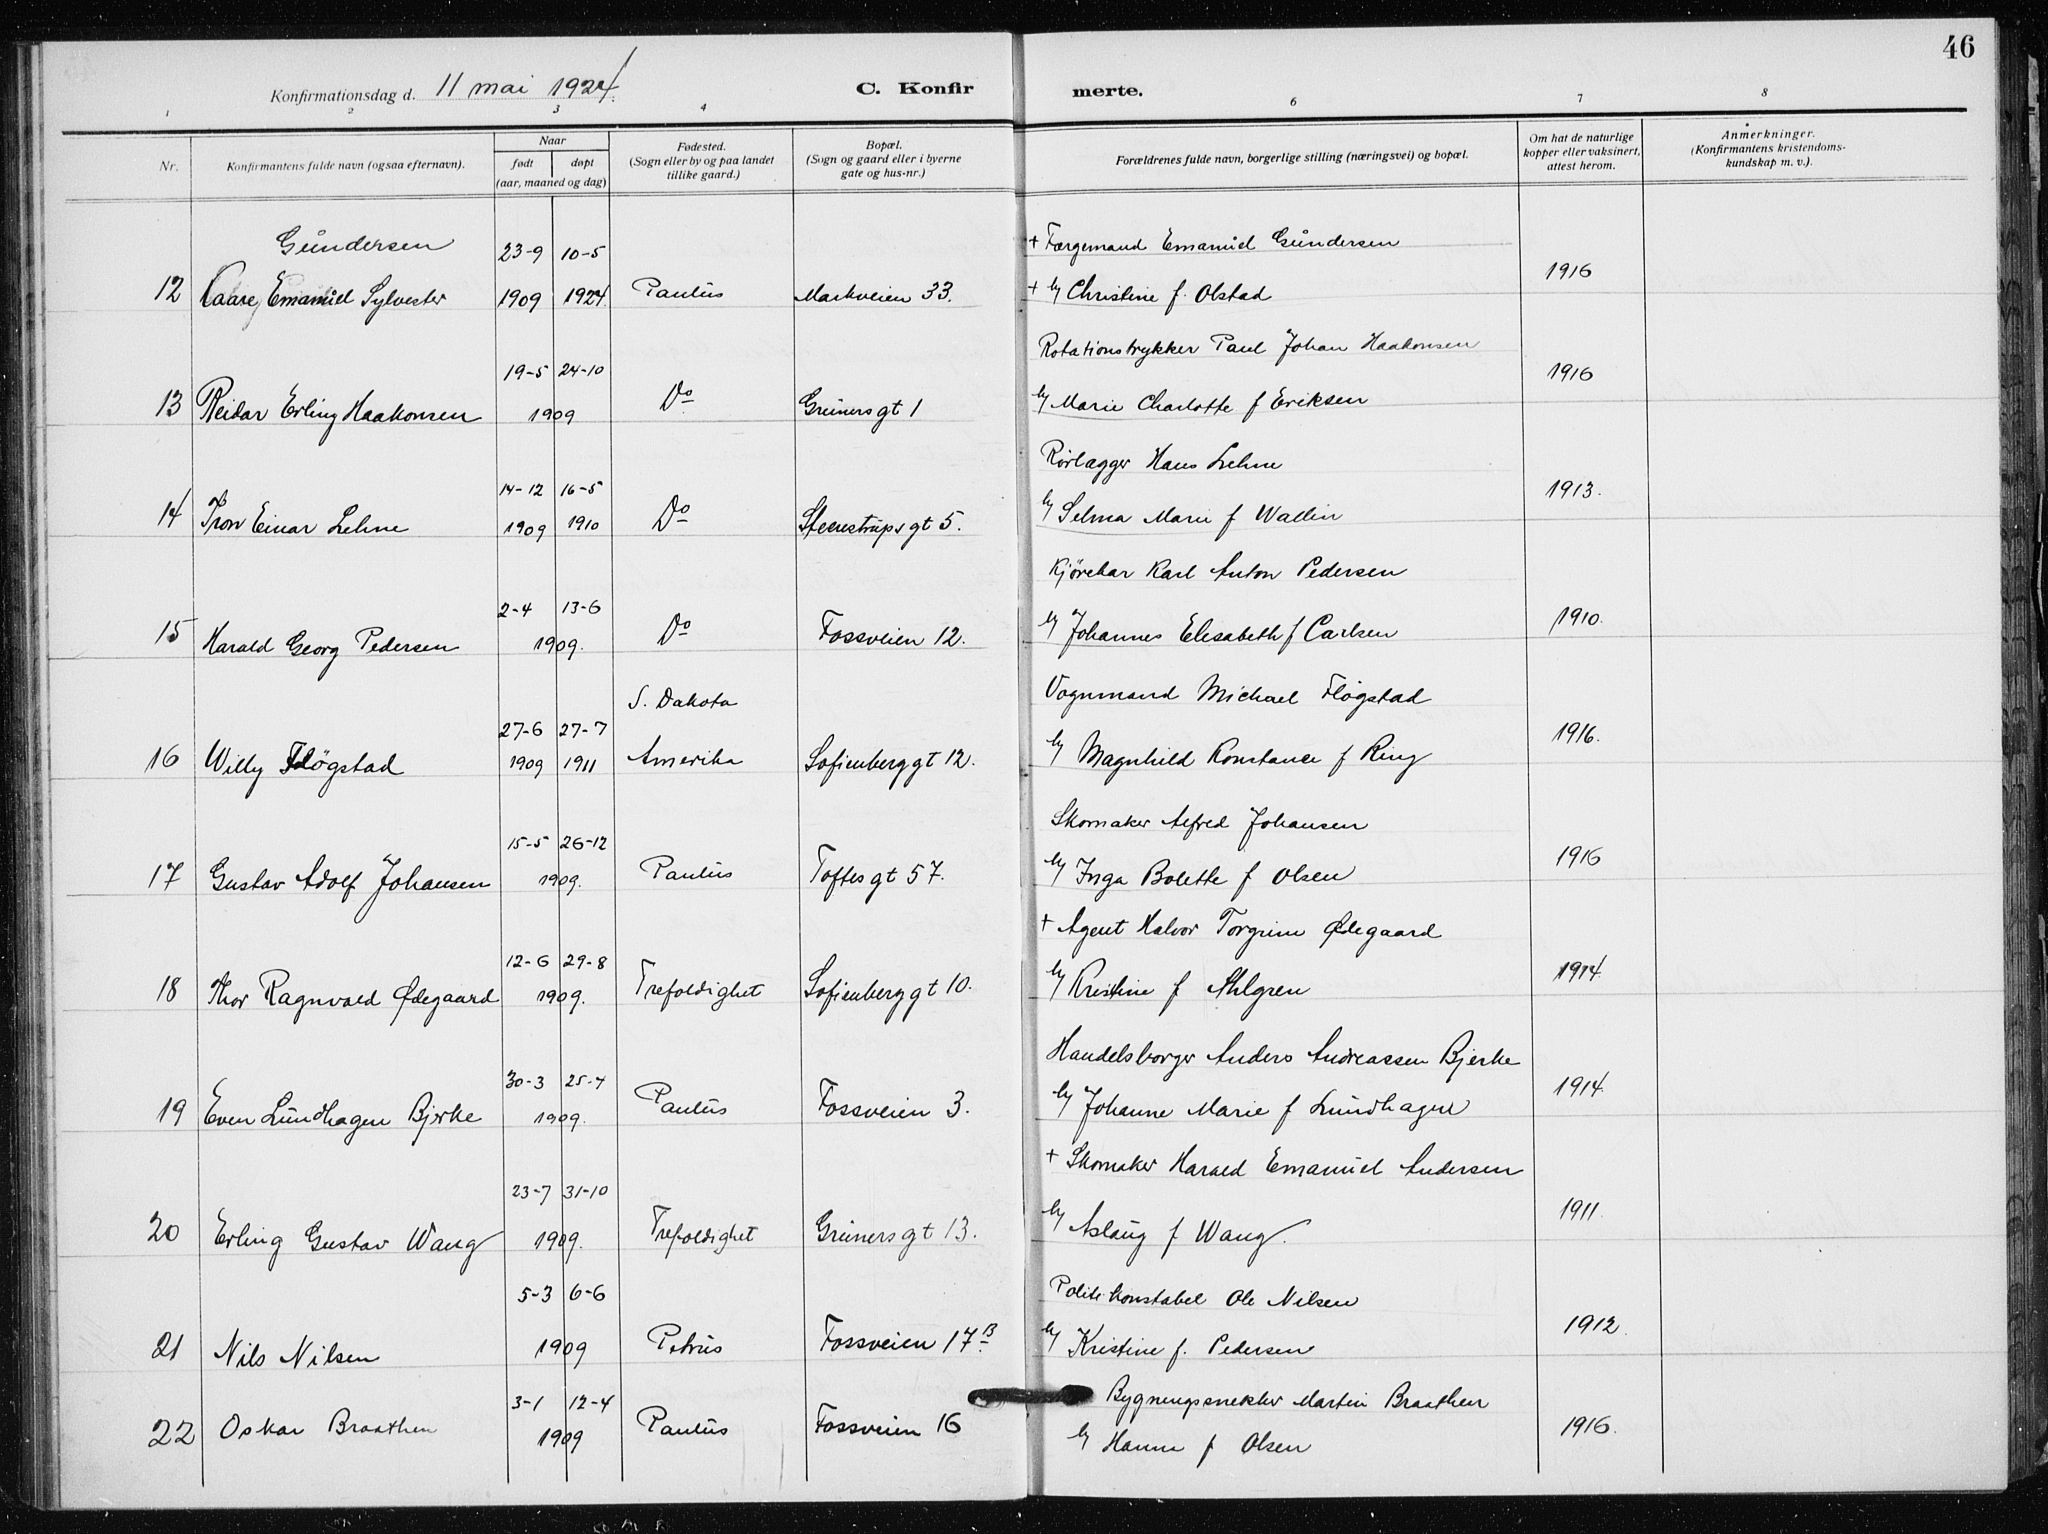 46
Konfirmationsdag d. 11 mai 1924.
C. Konfirmerte.
1 2 3 4 6 7 8
Nr.
Konfirmantens fulde navn (ogsaa efternavn).
Naar
født døpt
(aar, maaned og dag)
Fødested.
(Sogn eller by og paa landet
tillike gaard.)
Bopæl.
(Sogn og gaard eller i byerne
gate og hus-nr.)
Forældrenes fulde navn, borgerlige stilling (næringsvei) og bopæl.
Om hat de naturlige
kopper eller vaksinert,
attest herom.
Anmerkninger.
(Konfirmantens kristendoms-
kundskap m. v.).
Gundersen 23-9 10-5 + Færgemand Emanuel Gundersen
12 Kaare Emanuel Sylvester 1909 1924. Paulus Markveien 33. + by Christine f. Olstad 1916
19-5 24-10 Rotationstrykker Paul Johan Haakonsen
13 Reidar Erling Haakonsen 1909 Do Grünersgt 1 by Marie Charlotte f Eriksen 1916
14-12 16-5 Rørlægger Hans Lehne
14 Tron Einar Lehne 1909 1910 Do Steenstrupsgt 5. by Selma Marie f Wallin 1913.
2-4 13-6 Kjørekar Karl Anton Pedersen
15 Harald Georg Pedersen 1909. Do Fossveien 12. by Johannes Elisabeth f Carlsen 1910.
27-6 27-7 S. Dakota Vognmand Michael Fløgstad
16 Willy Fløgstad 1909 1911 Amerika Sofienberggt 12. by Magnhild Konstance f Ring 1916.
15-5 26-12 Skomaker Alfred Johansen
17 Gustav Adolf Johansen 1909. Paulus Toftesgt 57. by Inga Bolette f Olsen 1916
12-6 29-8 + Agent Halvor Torgrim Ødegaard
18 Thor Ragnvald Ødegaard 1909. Trefoldighet Sofienberggt 10. by Kristine f Ahlgren 1914.
30-3 25-4 Handelsborger Anders Andreassen Bjerke
19 Even Lundhagen Bjerke 1909. Paulus Fossveien 3. by Johanne Marie f Lundhagen 1914.
23-7 31-10 + Skomaker Harald Emanuel Andersen
20 Erling Gustav Wang 1909. Trefoldighet Grünersgt 13. by Aslaug f Wang. 1911.
5-3 6-6 Politikonstabel Ole Nilsen
21 Nils Nilsen 1909 Petrus Fossveien 17B by Kristine f. Pedersen 1912.
3-1 12-4 Bygningssnekker Martin Braathen
22 Oskar Braathen 1909 Paulus Fossveien 16 by Hanna f Olsen 1916.